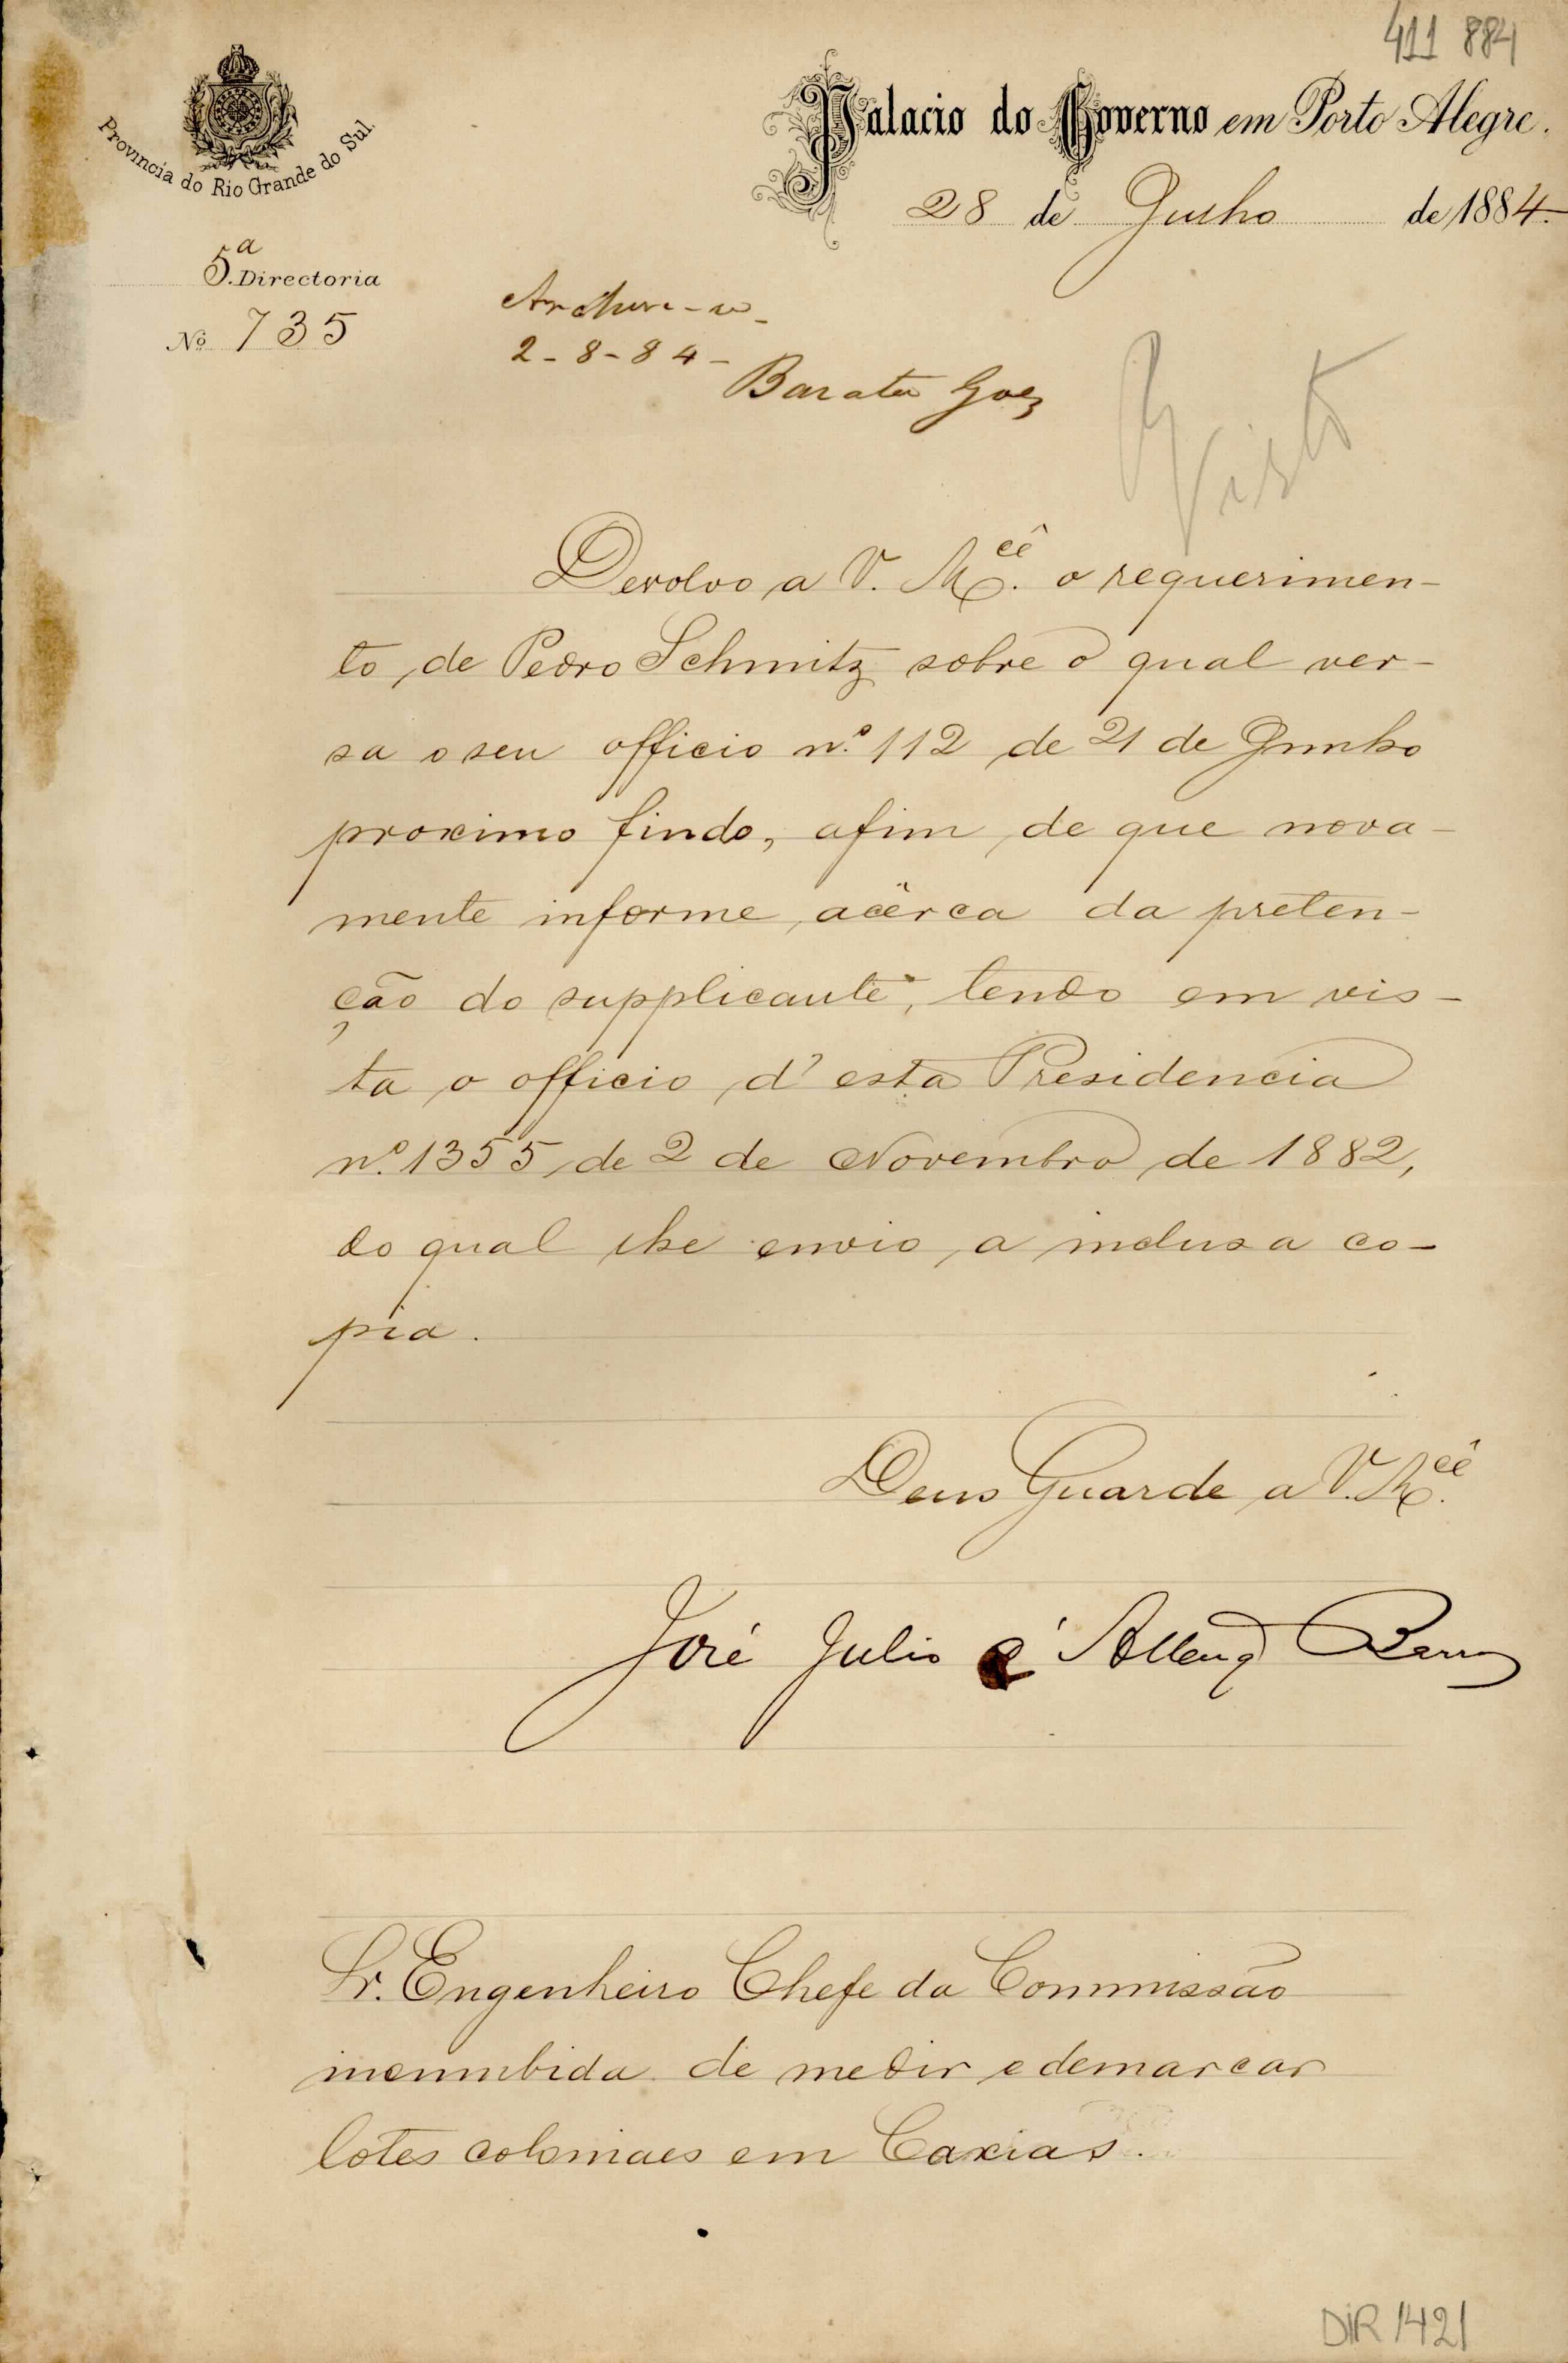 411 884
Provincia do Rio Grande do Sul.
Palacio do Governo em Porto Alegre.
28 de Julho de 1884.
5.ª Directoria
Nº 735
Archive-se
2-8-84-
Barata Goes
Visto
Devolvo a V. M.cê o requerimen-
to de Pedro Schmitz sobre o qual ver-
sa o seu officio n.º 112 de 21 de Junho
proximo findo, afim de que nova-
mente informe acêrca da preten-
ção do supplicante, tendo em vis-
ta o officio d'esta Presidencia
n.º 1355 de 2 de Novembro de 1882,
do qual lhe envio a inclusa co-
pia.
Deus Guarde a V. M.cê
José Julio d'Albuq Barros
Sr. Engenheiro Chefe da Commissão
incumbida de medir e demarcar
lotes coloniaes em Caxias.
DIR 1421